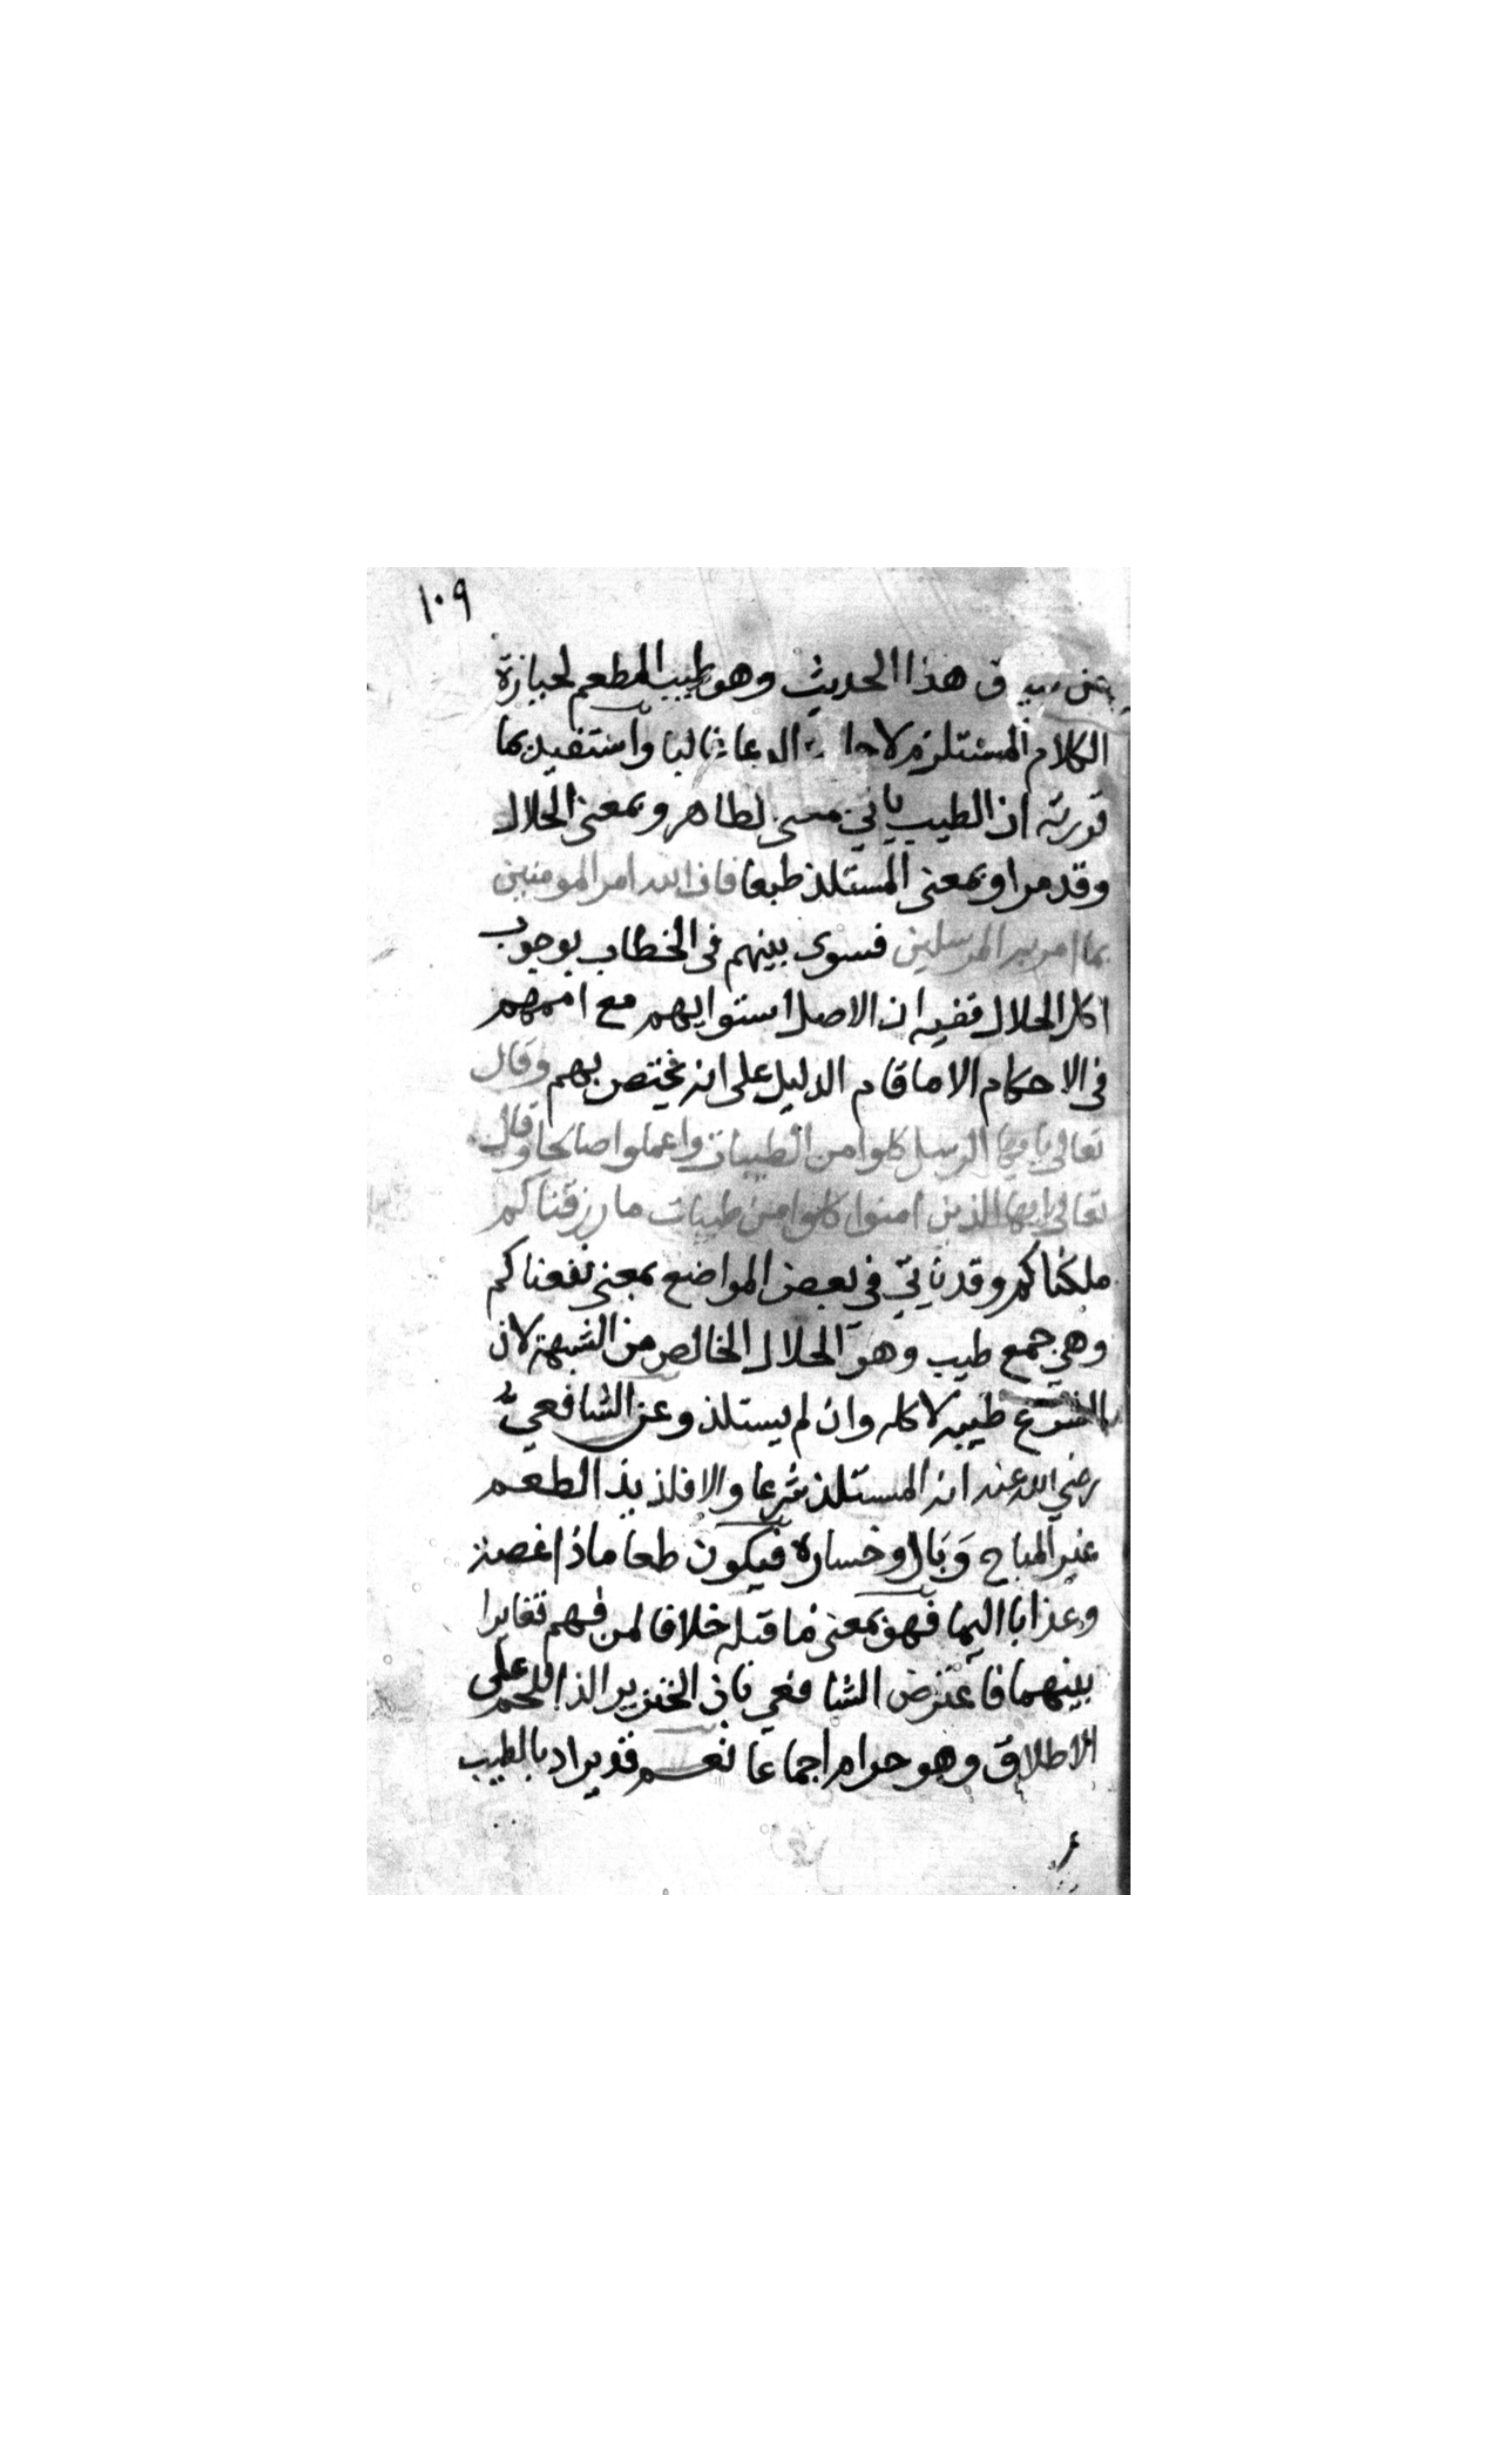 ١٠٩
هذا الحديث وهو طيب المطعم لحيازة
الكلام المستلزم الدعا غالبا واستفيد مما
قررته ان الطيب ياتي لطاهر وبمعنى الحلال
وقد مر او بمعنى المستلذ طبعا فان الله امر المومنين
بما امر به المرسلين فسوى بينهم في الخطاب بوجوب
اكل الحلال ففيه ان الاصل استوايهم مع اممهم
في الاحكام الا ما قام الدليل على انه مختص بهم وقال
تعالى يا ايها الرسل كلوا من الطيبات واعملوا صالحا وقال
تعالى يا ايها الذين امنوا كلوا من طيبات ما رزقناكم
ملكناكم وقد ياتي في بعض المواضع بمعنى نفعناكم
وهي جمع طيب وهو الحلال الخالص من الشبهة لان
الشرع طيبه لاكله وان لم يستلذ وعن الشافعي
رضي الله عنه انه المستلذ شرعا والا فلذيذ الطعم
غير المباح وبال وخسارة فيكون طعاما ذا غصة
وعذابا اليما فهو بمعنى ما قبله خلافا لمن فهم تغايرا
بينهما فاعترض الشافعي بان الخنزير الذ اللحم على
الاطلاق وهو حرام اجماعا نعم قد يراد بالطيب